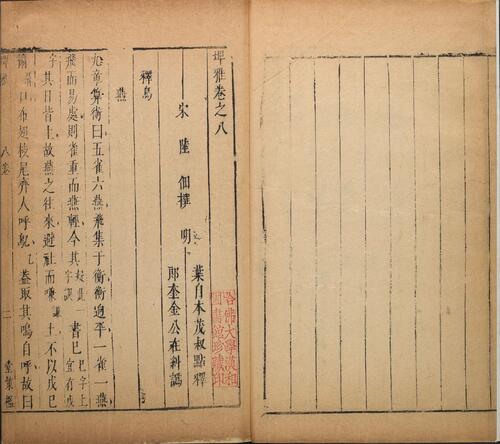 埤雅卷之八
宋 陸 佃撰 明
葉自本茂叔點釋
郎奎金公在糾譌
哈佛大學漢和圖書館珍藏印
釋鳥
燕
九章算術曰五雀六燕飛集于衡衡適平一雀一燕
飛而易處則雀重而燕輕今其字誤 書巳 宜有戊
字其日皆土故燕之往來避社而嗛土不以戊巳
口布翅枝尾齊人呼鳦 蓋取其鳴自呼故曰
八卷
堂策檻